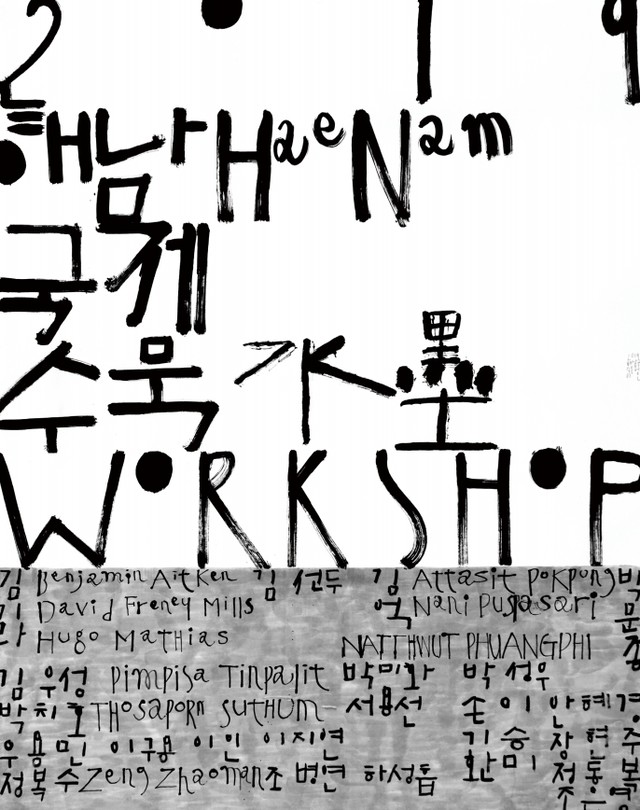 2 • 1 9
해남 HaeNam
국제
수묵 水墨
WORKSHOP
김 Benjamin Aitken 김 선두 김 Attasit Pokpong 박
David Freney Mills 억 Nani Puspasari
Hugo Mathias NATTHWUT PHUANGPHI
김 우성 Pimpisa Tinpalit 박미화 박 성우
박 치 THosaporn Suthum 서용선 손 이 안 혜
우 용민 이구용 이인 이지연 김 승 장 현 주
정 복 수 Zeng Zhaoman 조 병연 하성흡